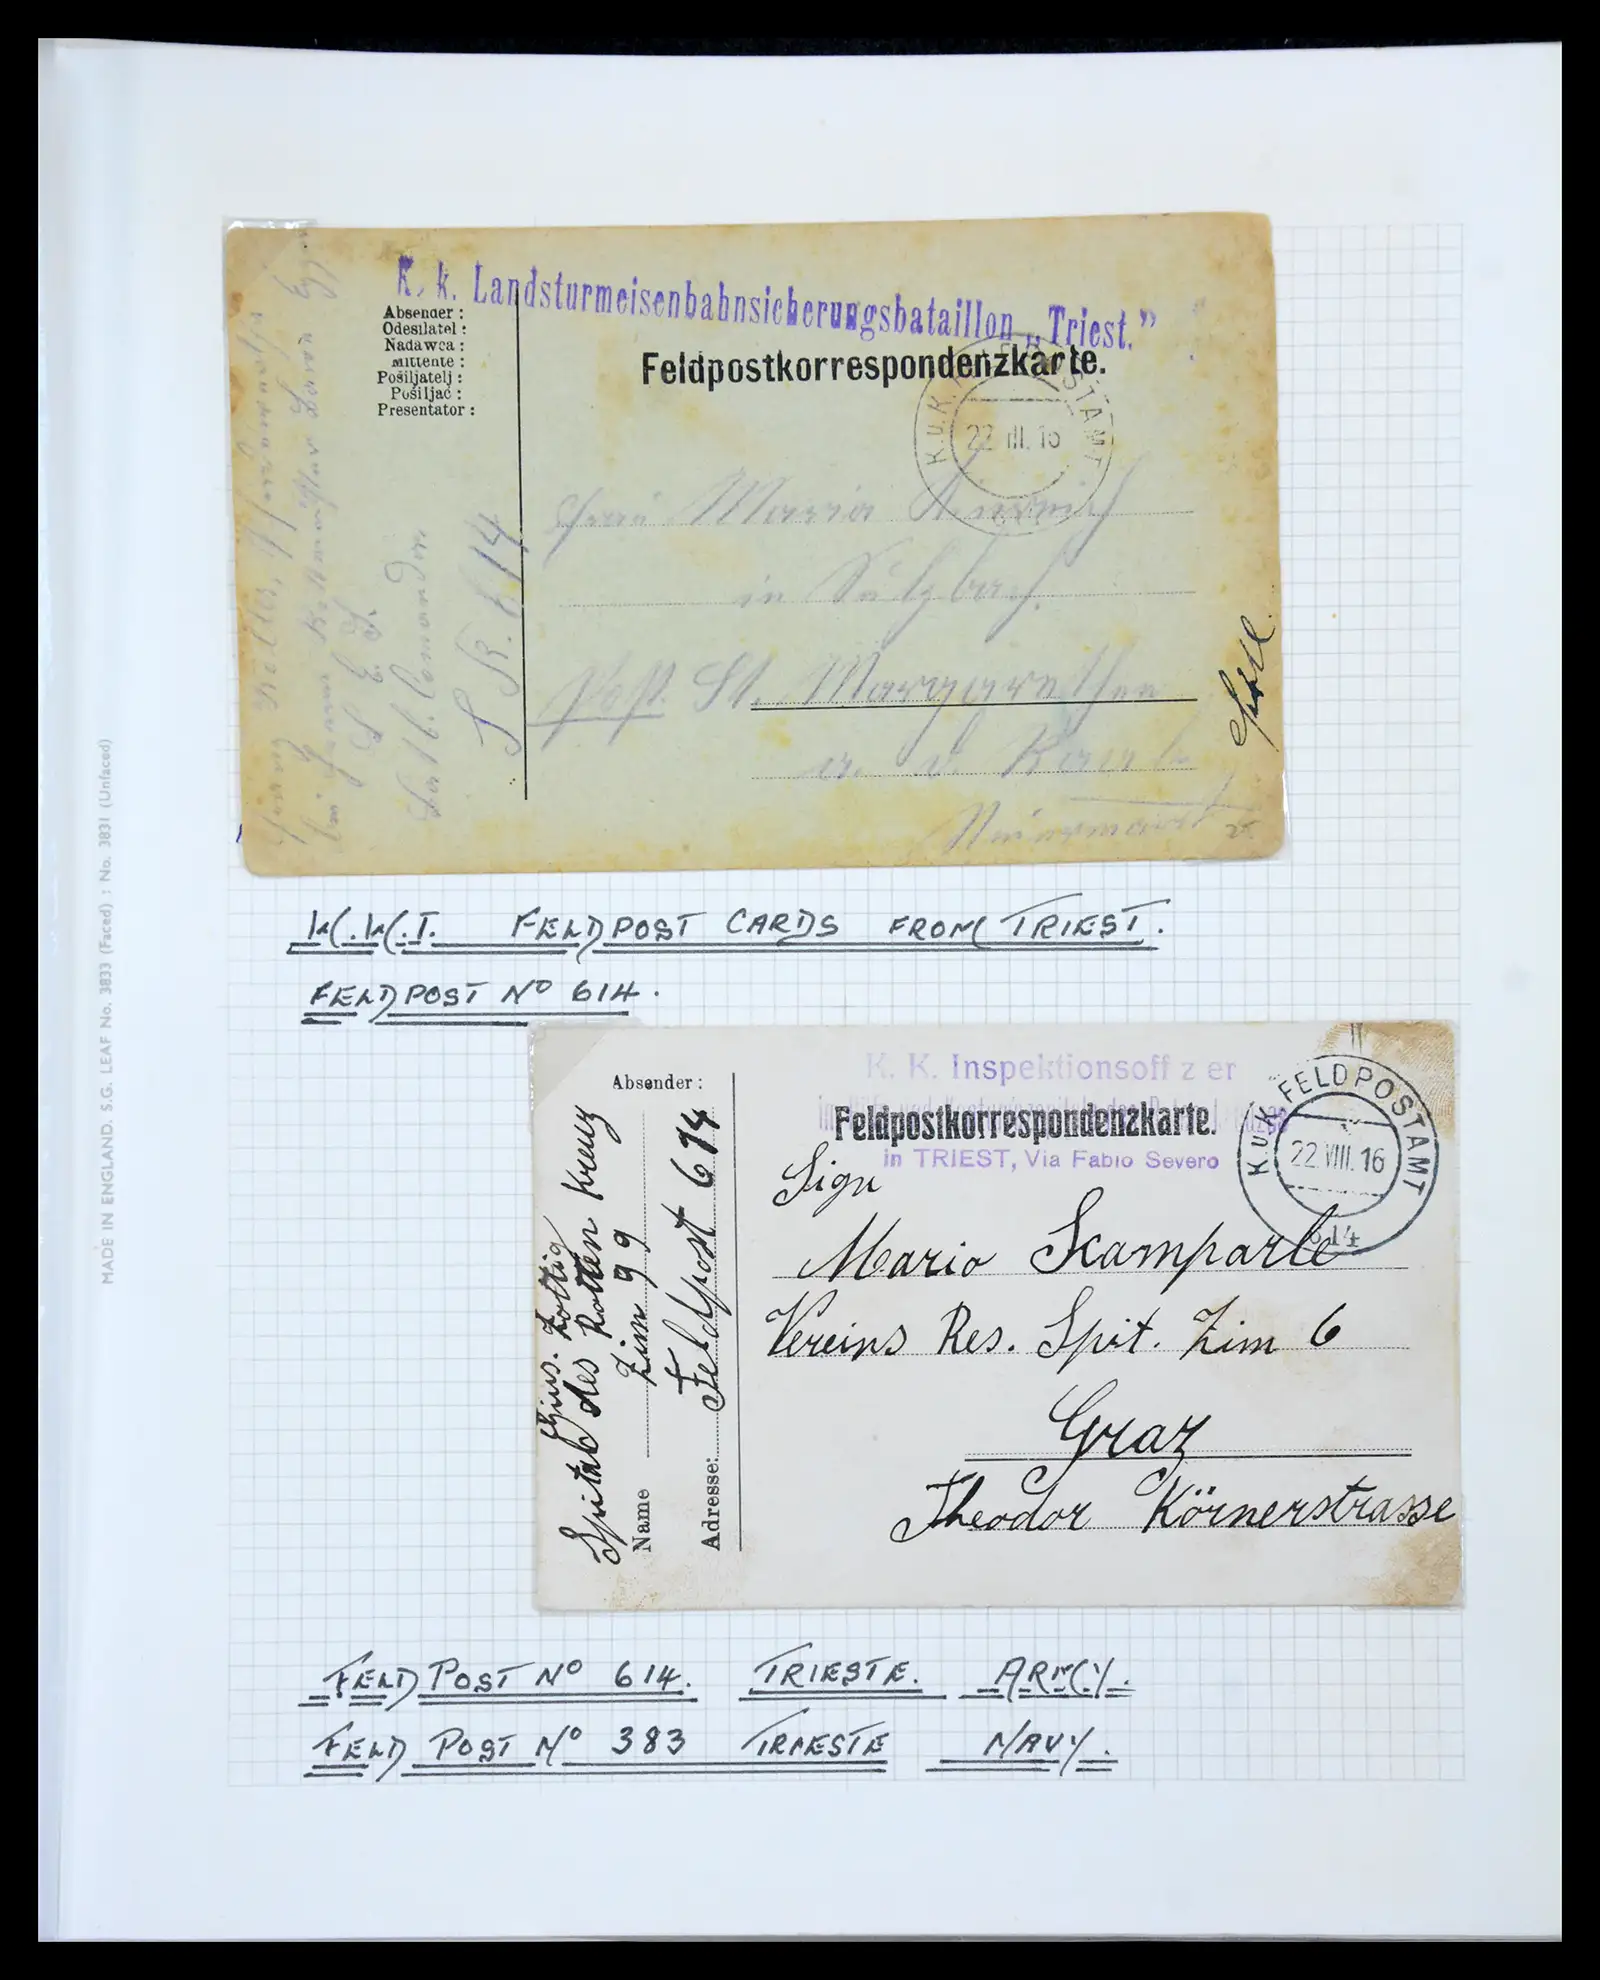 K. k. Landsturmeisenbahnsicherungsbataillon „Triest."
Absender :
Odesílatel :
Nadawca :
Mittente :
Pošiljatelj :
Pošiljač :
Presentator :
Feldpostkorrespondenzkarte.
K.u.K. STAMT
22 III. 16
Maria
in Sulzbach
Post St. Margarethen
a. d. Raab
614
K.K.I. FELDPOST CARDS FROM TRIEST.
FELDPOST Nº 614.
K. K. Inspektionsoff z er
Feldpostkorrespondenzkarte.
in TRIEST, Via Fabio Severo
K.u.K. FELDPOSTAMT
22.VIII.16
614
Absender :
Spital des Rotten Kreuz
Name Zim 99
Adresse: Feldpost 614
Sign
Mario Skamparle
Vereins Res. Spit. Zim 6
Graz
Theodor Körnerstrasse
FELD POST Nº 614. TRIESTE. ARMY.
FELD POST Nº 383 TRIESTE NAVY.
MADE IN ENGLAND. S.G. LEAF No. 3833 (Faced) : No. 3831 (Unfaced)